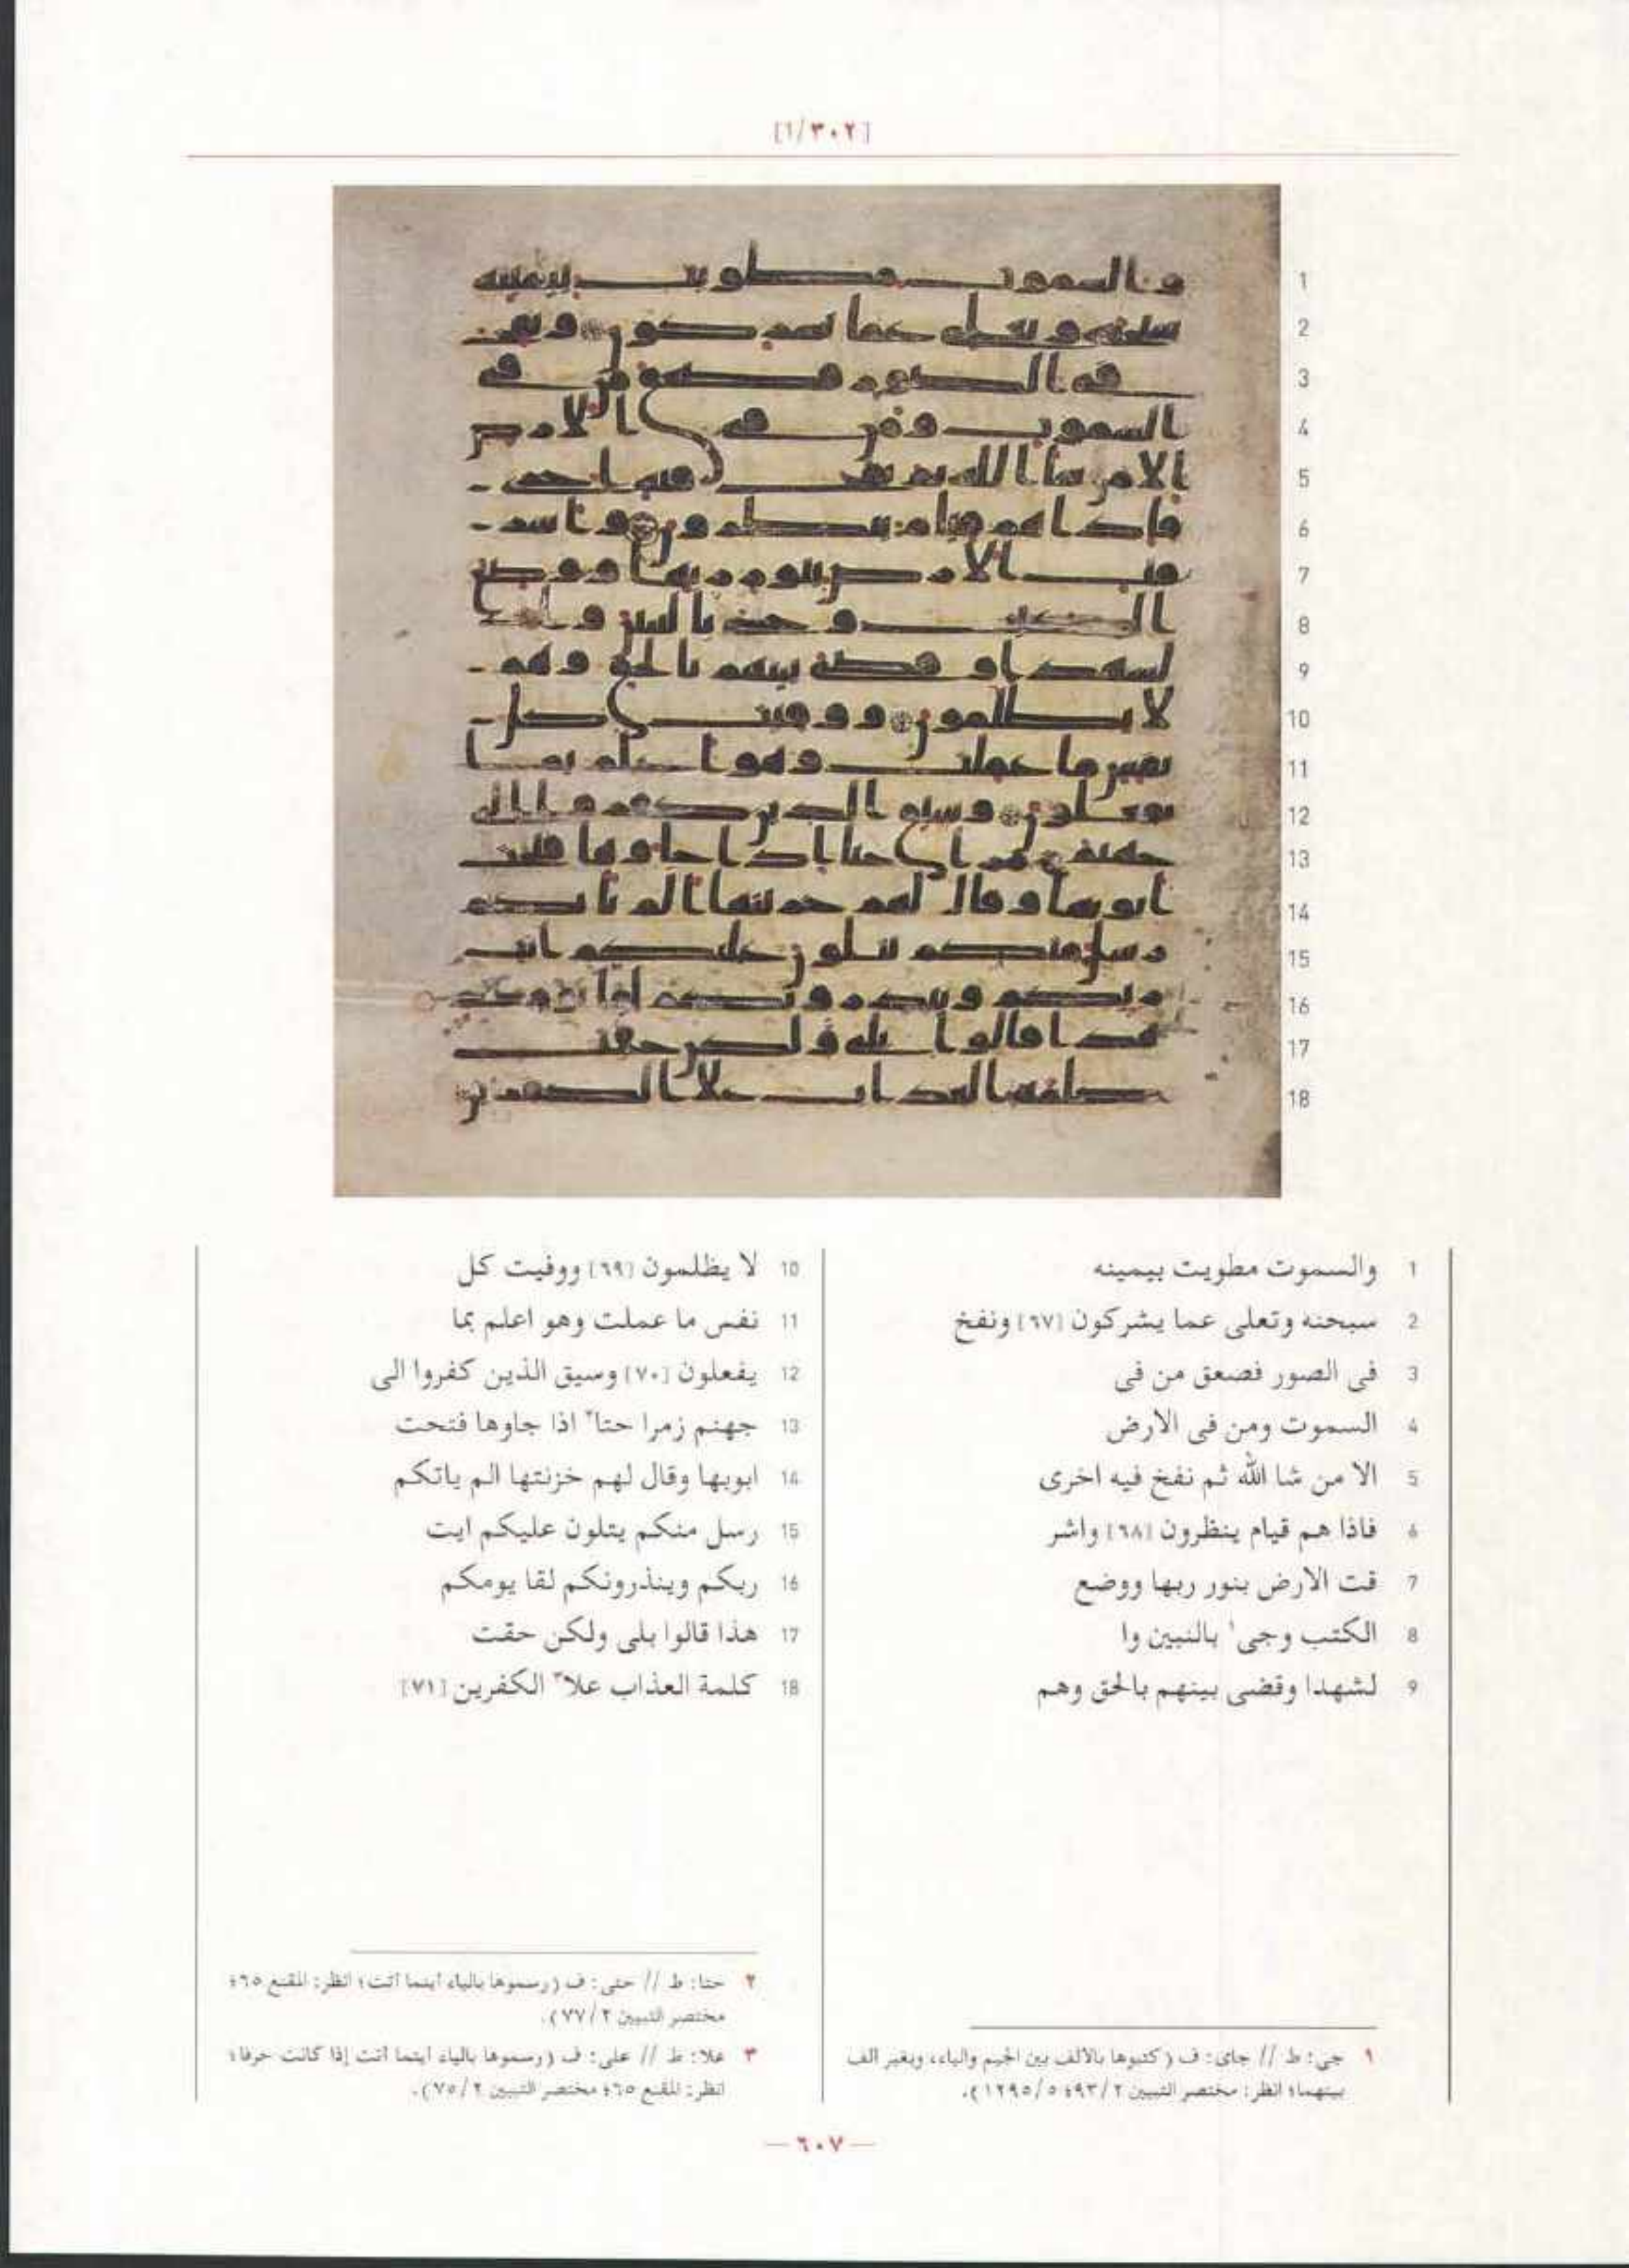 [١/٣٠٢]
1 والسموت مطويت بيمينه
2 سبحنه وتعلى عما يشركون [٦٧] ونفخ
3 فى الصور فصعق من فى
4 السموت ومن فى الارض
5 الا من شا الله ثم نفخ فيه اخرى
6 فاذا هم قيام ينظرون [٦٨] واشر
7 قت الارض بنور ربها ووضع
8 الكتب وجى١ بالنبين وا
9 لشهدا وقضى بينهم بالحق وهم
10 لا يظلمون [٦٩] ووفيت كل
11 نفس ما عملت وهو اعلم بما
12 يفعلون [٧٠] وسيق الذين كفروا الى
13 جهنم زمرا حتا٢ اذا جاوها فتحت
14 ابوبها وقال لهم خزنتها الم ياتكم
15 رسل منكم يتلون عليكم ايت
16 ربكم وينذرونكم لقا يومكم
17 هذا قالوا بلى ولكن حقت
18 كلمة العذاب علا٣ الكفرين [٧١]
١ جى: ط // جاى: ف (كتبوها بالالف بين الجيم والياء، وبغير الف
بينهما؛ انظر: مختصر التبيين ٩٣/٢؛ ١٢٩٥/٥).
٢ حتا: ط // حتى: ف (رسموها بالياء اينما أتت؛ انظر: المقنع ٦٥؛
مختصر التبيين ٧٧/٢).
٣ علا: ط // على: ف (رسموها بالياء اينما أتت إذا كانت حرفا؛
انظر: المقنع ٦٥؛ مختصر التبيين ٧٥/٢).
— ٦٠٧ —